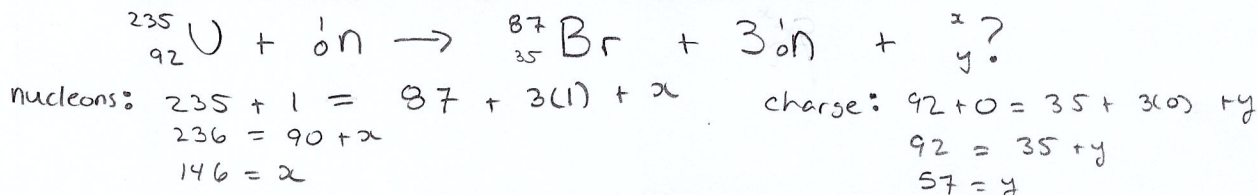 ²³⁵₉₂U + ¹₀n → ⁸⁷₃₅Br + 3¹₀n + ˣᵧ?
nucleons: 235 + 1 = 87 + 3(1) + x
236 = 90 + x
146 = x
charge: 92 + 0 = 35 + 3(0) + y
92 = 35 + y
57 = y